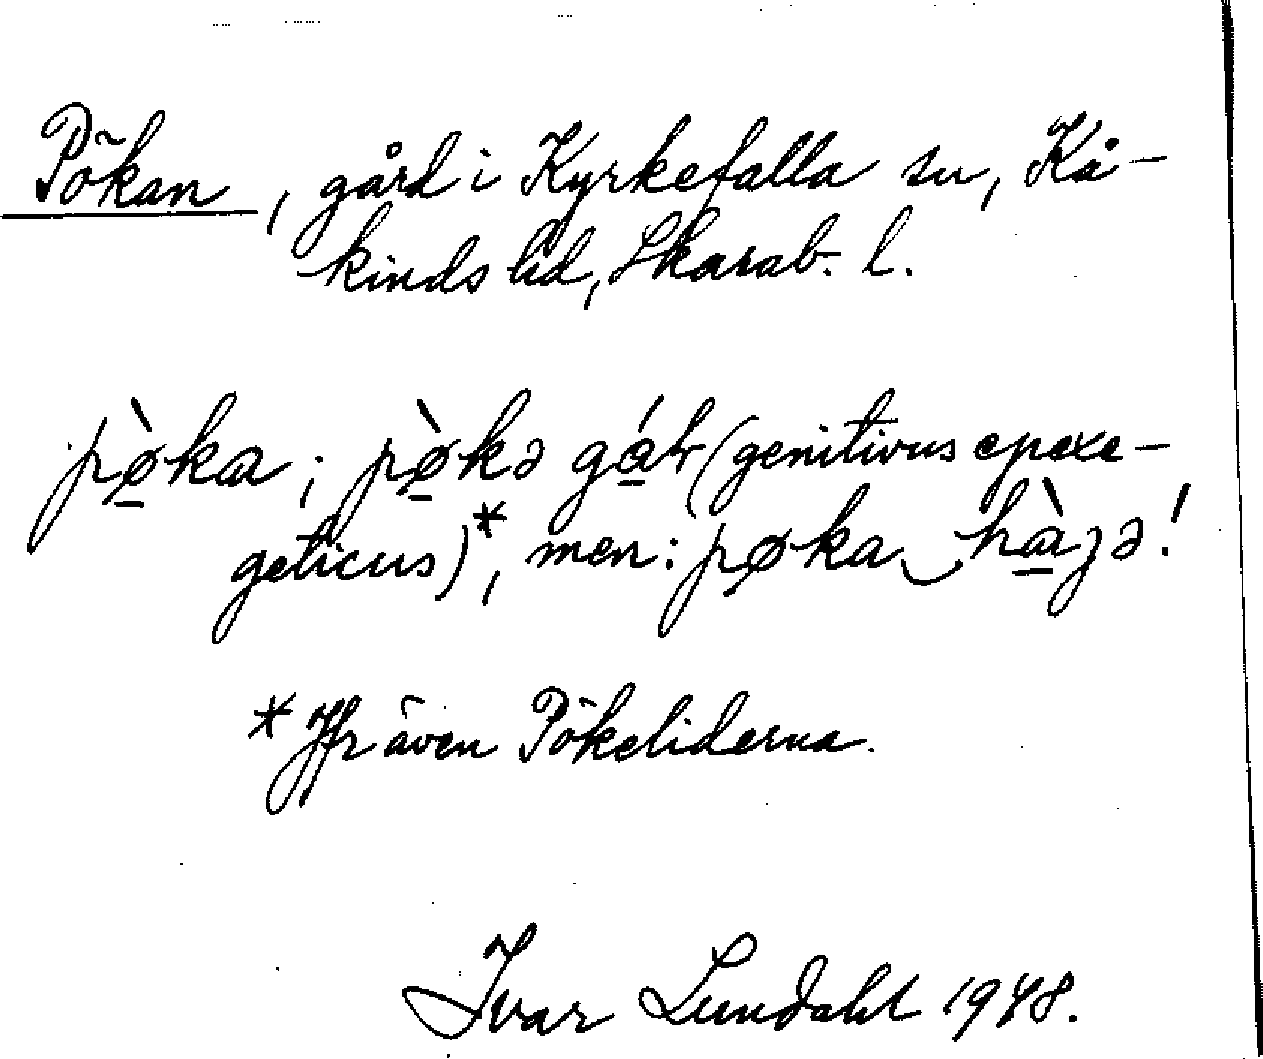 Pökan, gård i Kyrkefalla sn, Kå-
kinds hd, Skarab. l.
pø̱̀ka; pø̱̀kə gá̱ḷ (genitivus epexe-
geticus)*, men: pøka‿hà̱gə!
* Jfr även Pökeliderna.
Ivar Lundahl 1948.